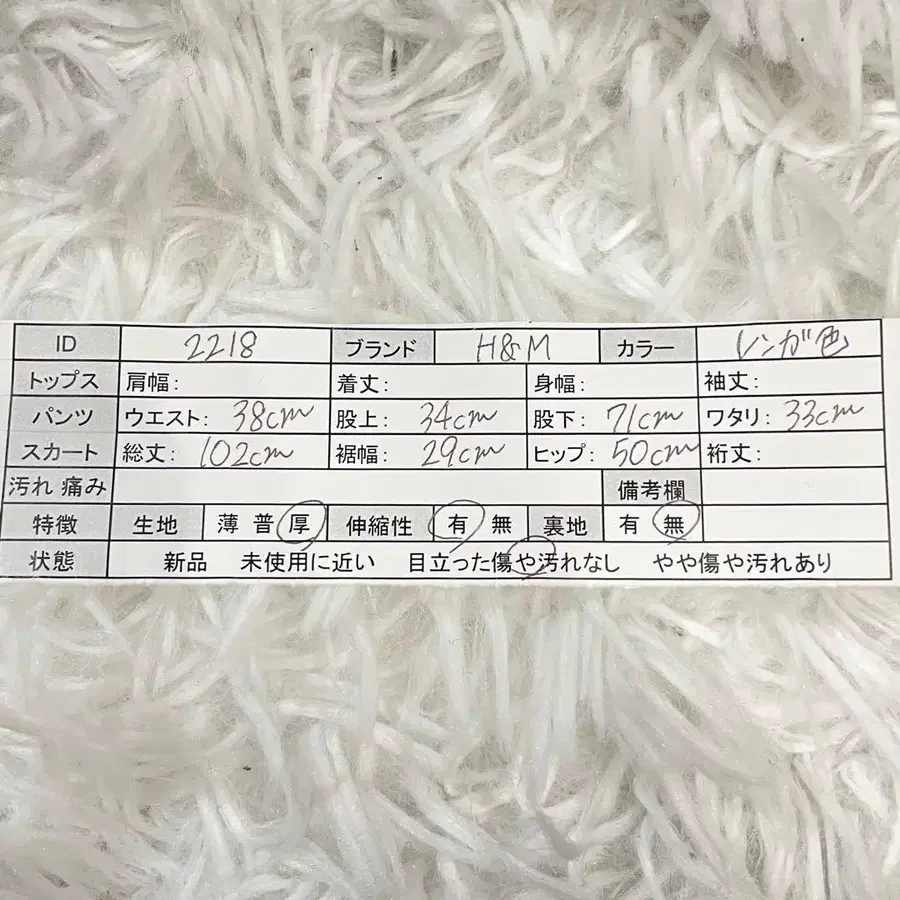 ID 2218 ブランド H&M カラー レンガ色
トップス 肩幅: 着丈: 身幅: 袖丈:
パンツ ウエスト: 38cm 股上: 34cm 股下: 71cm ワタリ: 33cm
スカート 総丈: 102cm 裾幅: 29cm ヒップ: 50cm 裄丈:
汚れ 痛み 備考欄
特徴 生地 薄 普 厚 伸縮性 有 無 裏地 有 無
状態 新品 未使用に近い 目立った傷や汚れなし やや傷や汚れあり